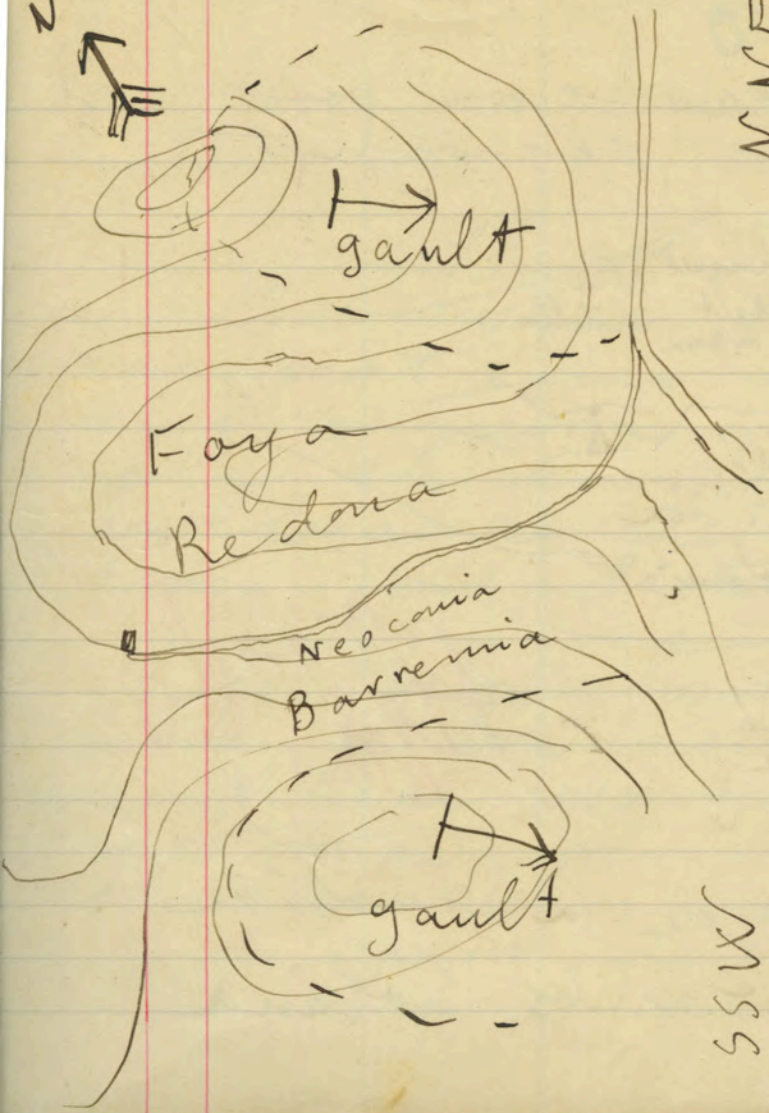 N
NNE
gault
Foya
Redona
Neocomia
Barremia
gault
SSW